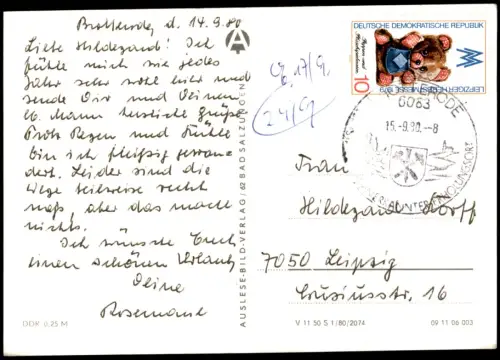 Brotterode, d. 14.9.80
Liebe Hildegard! Ich
fühle mich wie jedes
Jahr sehr wohl hier und
sende Dir und Deinem
lb. Mann herzliche Grüße.
Trotz Regen und Kühle
bin ich fleißig gewan-
dert. Leider sind die
Wege teilweise recht
naß, aber das macht
nichts.
Ich wünsche Euch
einen schönen Urlaub
Deine
Rosemarie
DDR 0,25 M
AUSLESE-BILD-VERLAG / 62 BAD SALZUNGEN
17/9.
24/9
DEUTSCHE DEMOKRATISCHE REPUBLIK
10
LEIPZIGER HERBSTMESSE 1979
6083
15.-9.80.-8
Frau
Hildegard Korff
7050 Leipzig
Crusiusstr. 16
V 11 50 S 1/80/2074
09 11 06 003